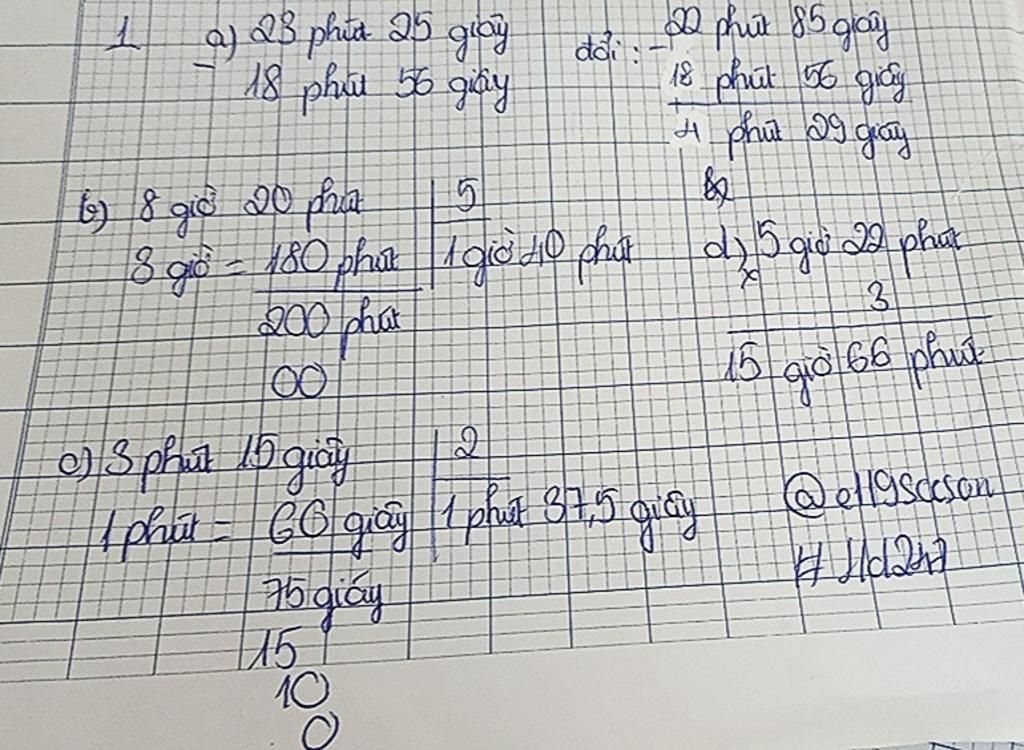 1 a) 23 phút 25 giây
- 18 phút 56 giây
đổi: - 22 phút 85 giây
18 phút 56 giây
4 phút 29 giây
b) 8 giờ 20 phút 5
3 giờ = 180 phút 1 giờ 40 phút
200 phút
00
d) 5 giờ 22 phút
x 3
15 giờ 66 phút
c) 3 phút 15 giây 2
1 phút = 60 giây 1 phút 37,5 giây
75 giây
15
10
0
@e119sccson